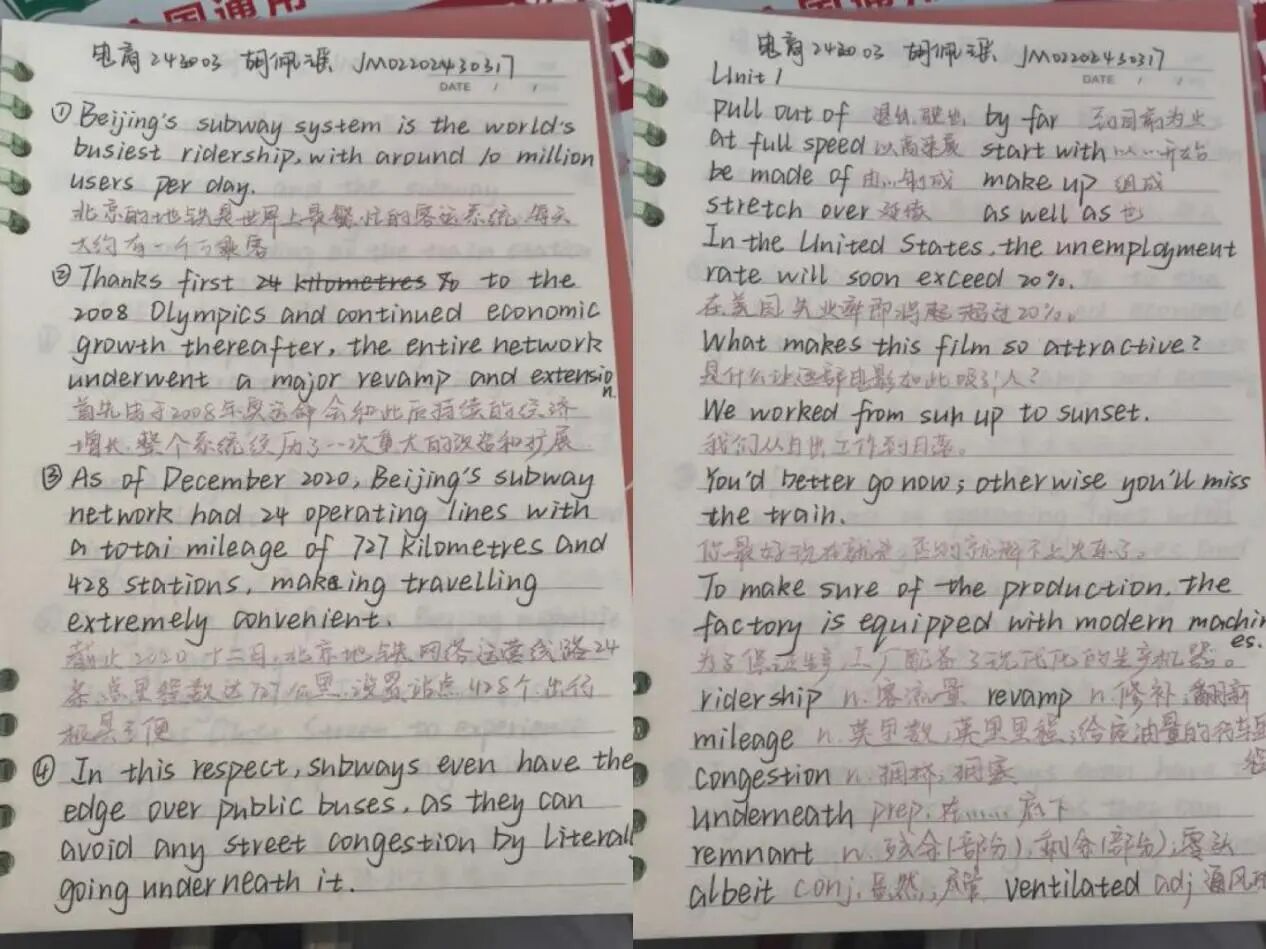 全国通用
电商243003 胡佩瑶 JM02202430317
DATE / /
① Beijing's subway system is the world's
busiest ridership, with around 10 million
users per day.
北京的地铁是世界上最繁忙的客运系统 每天
大约有一个百乘客
② Thanks first 24 kilometres % to the
2008 Olympics and continued economic
growth thereafter, the entire network
underwent a major revamp and extension.
首先由于2008年奥运会和此后持续的经济
增长,整个系统经历了一次重大的改造和扩展
③ As of December 2020, Beijing's subway
network had 24 operating lines with
a totai mileage of 727 kilometres and
428 stations, making travelling
extremely convenient.
截止2020十二月,北京地铁网络运营线路24
条,总里程数达727公里,设置站点428个,出行
极其方便
④ In this respect, subways even have the
edge over public buses, as they can
avoid any street congestion by literall
going underneath it.
电商243003 胡佩瑶 JM02202430317
DATE / /
Unit 1
pull out of 退出,驶出 by far 到目前为止
at full speed 以高速度 start with 以…开始
be made of 由…制成 make up 组成
stretch over as well as 也
① In the United States, the unemployment
rate will soon exceed 20%.
在美国失业率即将超过20%。
What makes this film so attractive?
是什么让这部电影如此吸引人?
We worked from sun up to sunset.
我们从日出工作到日落。
You'd better go now; otherwise you'll miss
the train.
你最好现在就走,否则就赶不上火车了。
To make sure of the production, the
factory is equipped with modern machines.
为了保证生产,工厂配备了现代化的生产机器。
ridership n. 客流量 revamp n. 修补,翻新
mileage n. 英里数,英里里程;给定油量的行车里程
congestion n. 拥挤,拥塞
underneath prep. 在……底下
remnant n. 残余(部分),剩余(部分);零头
albeit conj. 虽然;尽管 ventilated adj 通风